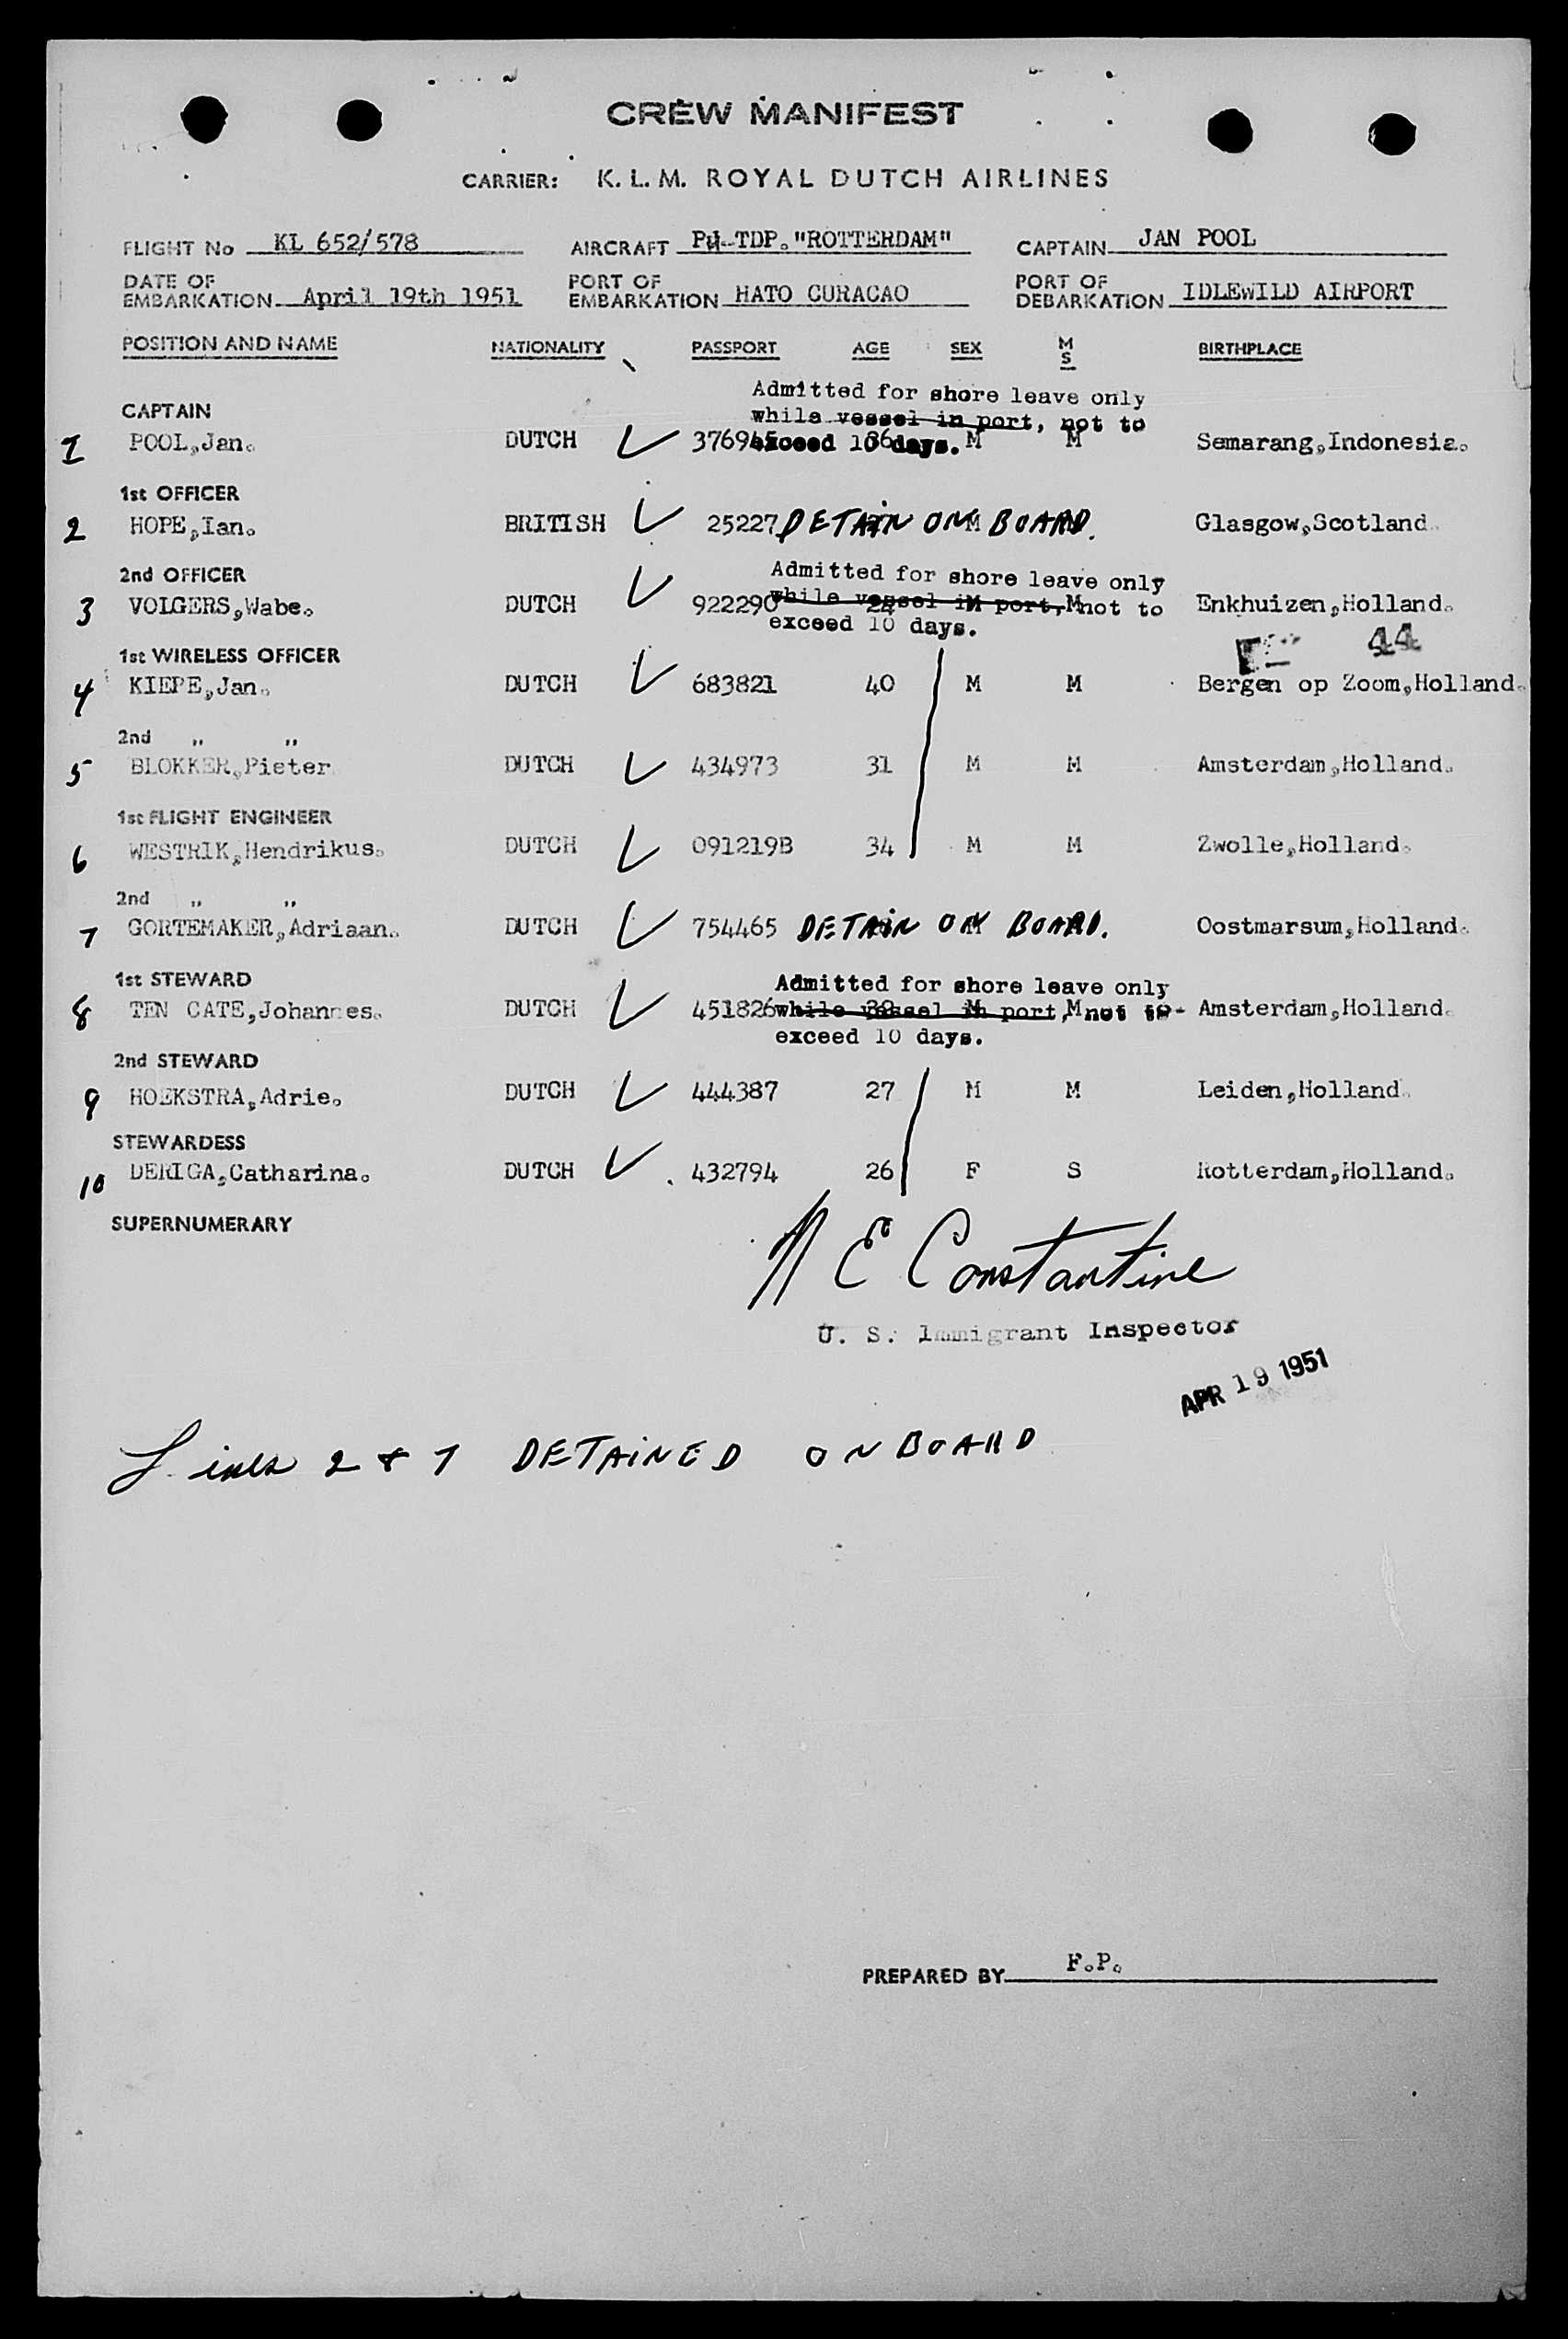 CREW MANIFEST
CARRIER: K. L. M. ROYAL DUTCH AIRLINES
FLIGHT No KL 652/578 AIRCRAFT PH-TDP. "ROTTERDAM" CAPTAIN JAN POOL
DATE OF EMBARKATION April 19th 1951 PORT OF EMBARKATION HATO CURACAO PORT OF DEBARKATION IDLEWILD AIRPORT
POSITION AND NAME NATIONALITY PASSPORT AGE SEX M S BIRTHPLACE
Admitted for shore leave only
while vessel in port, not to
exceed 10 days.
CAPTAIN
1 POOL,Jan. DUTCH 376945 36 M M Semarang,Indonesia.
1st OFFICER
2 HOPE,Ian. BRITISH 25227 DETAIN ON BOARD. M Glasgow,Scotland.
2nd OFFICER
Admitted for shore leave only
while vessel in port, not to
exceed 10 days.
3 VOLGERS,Wabe. DUTCH 922290 24 M M Enkhuizen,Holland.
44
1st WIRELESS OFFICER
4 KIEPE,Jan. DUTCH 683821 40 M M Bergen op Zoom,Holland.
2nd " "
5 BLOKKER,Pieter. DUTCH 434973 31 M M Amsterdam,Holland.
1st FLIGHT ENGINEER
6 WESTRIK,Hendrikus. DUTCH 091219B 34 M M Zwolle,Holland.
2nd " "
7 GORTEMAKER,Adriaan. DUTCH 754465 DETAIN ON BOARD. M Oostmarsum,Holland.
1st STEWARD
Admitted for shore leave only
while vessel in port, not to
exceed 10 days.
8 TEN CATE,Johannes. DUTCH 451826 M M Amsterdam,Holland.
2nd STEWARD
9 HOEKSTRA,Adrie. DUTCH 444387 27 M M Leiden,Holland.
STEWARDESS
10 DERIGA,Catharina. DUTCH 432794 26 F S Rotterdam,Holland.
SUPERNUMERARY
N E Constantine
U. S. Immigrant Inspector
APR 19 1951
Lines 2 & 7 DETAINED ON BOARD
PREPARED BY F.P.